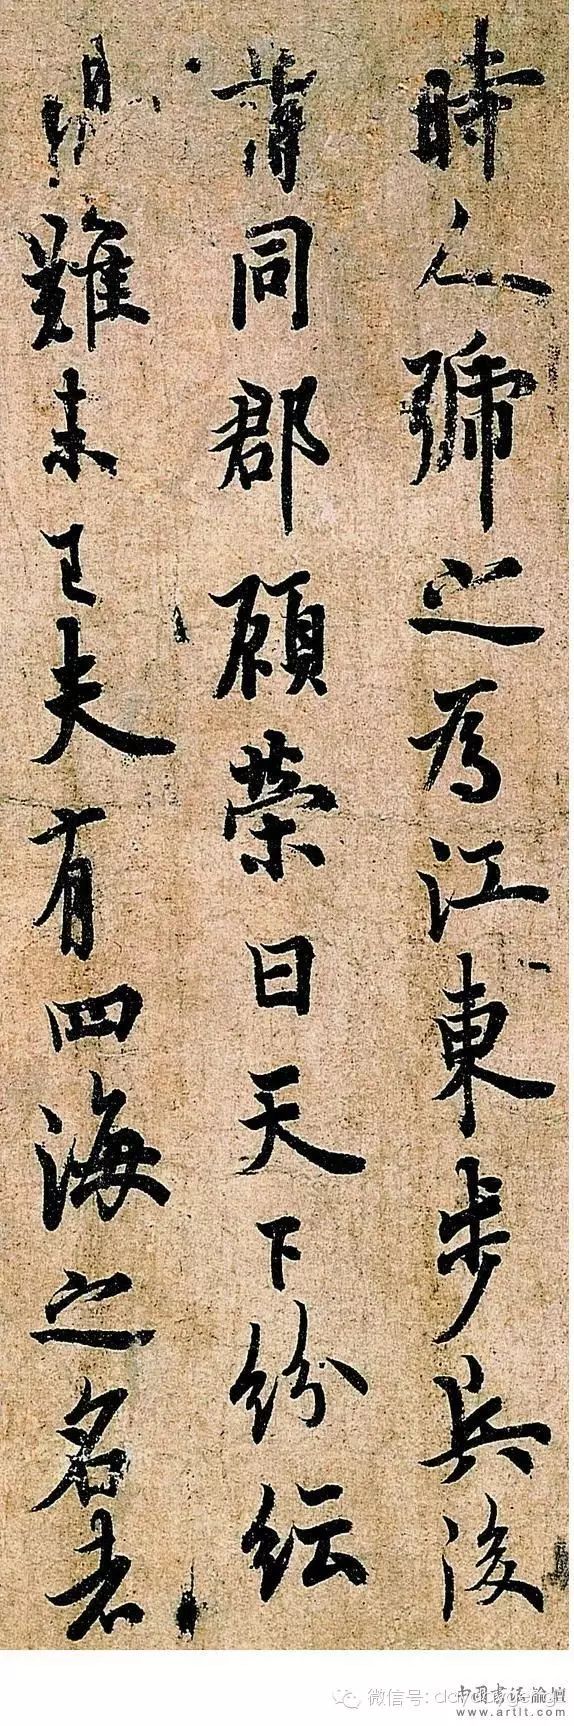 時人號之為江東步兵後
謂同郡顧榮曰天下紛紜
禍難未已夫有四海之名者
微信号:
中国書法論壇
www.artlt.com